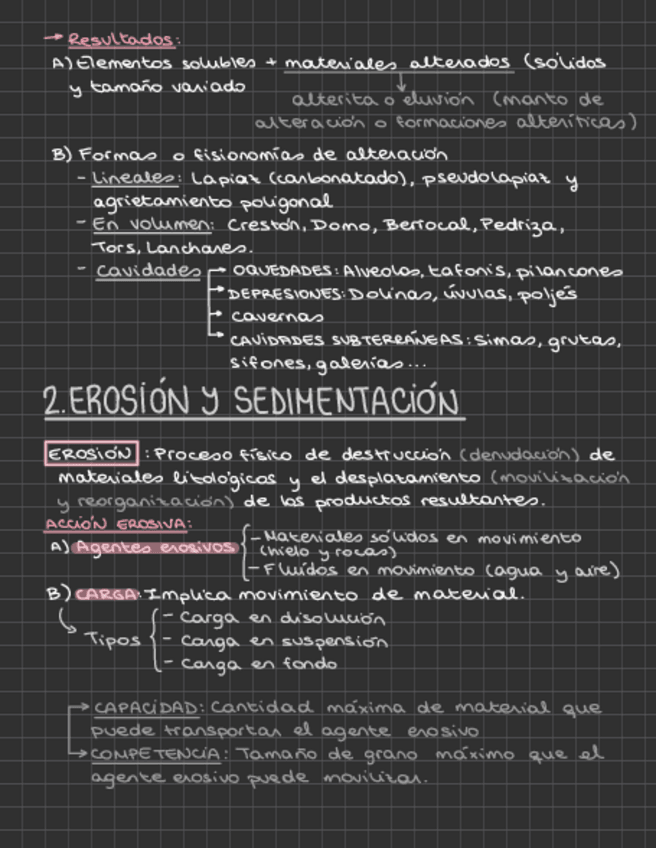 → Resultados:
A) Elementos solubles + materiales alterados (sólidos
y tamaño variado
alterita o eluvión (manto de
alteración o formaciones alteríticas)
B) Formas o fisionomías de alteración
- Lineales: Lapiaz (carbonatado), pseudolapiaz y
agrietamiento poligonal
- En volumen: Crestón, Domo, Berrocal, Pedriza,
Tors, Lanchares.
- Cavidades → OQUEDADES: Alveolos, tafonis, pilancones
→ DEPRESIONES: Dolinas, úvulas, poljés
→ cavernas
→ CAVIDADES SUBTERRÁNEAS: Simas, grutas,
sifones, galerías...
2. EROSIÓN Y SEDIMENTACIÓN
EROSIÓN: Proceso físico de destrucción (denudación) de
materiales litológicos y el desplazamiento (movilización
y reorganización) de los productos resultantes.
ACCIÓN EROSIVA:
A) Agentes erosivos { - Materiales sólidos en movimiento
(hielo y rocas)
- Fluídos en movimiento (agua y aire)
B) CARGA: Implica movimiento de material.
Tipos { - Carga en disolución
- Carga en suspensión
- Carga en fondo
→ CAPACIDAD: Cantidad máxima de material que
puede transportar el agente erosivo
→ COMPETENCIA: Tamaño de grano máximo que el
agente erosivo puede movilizar.